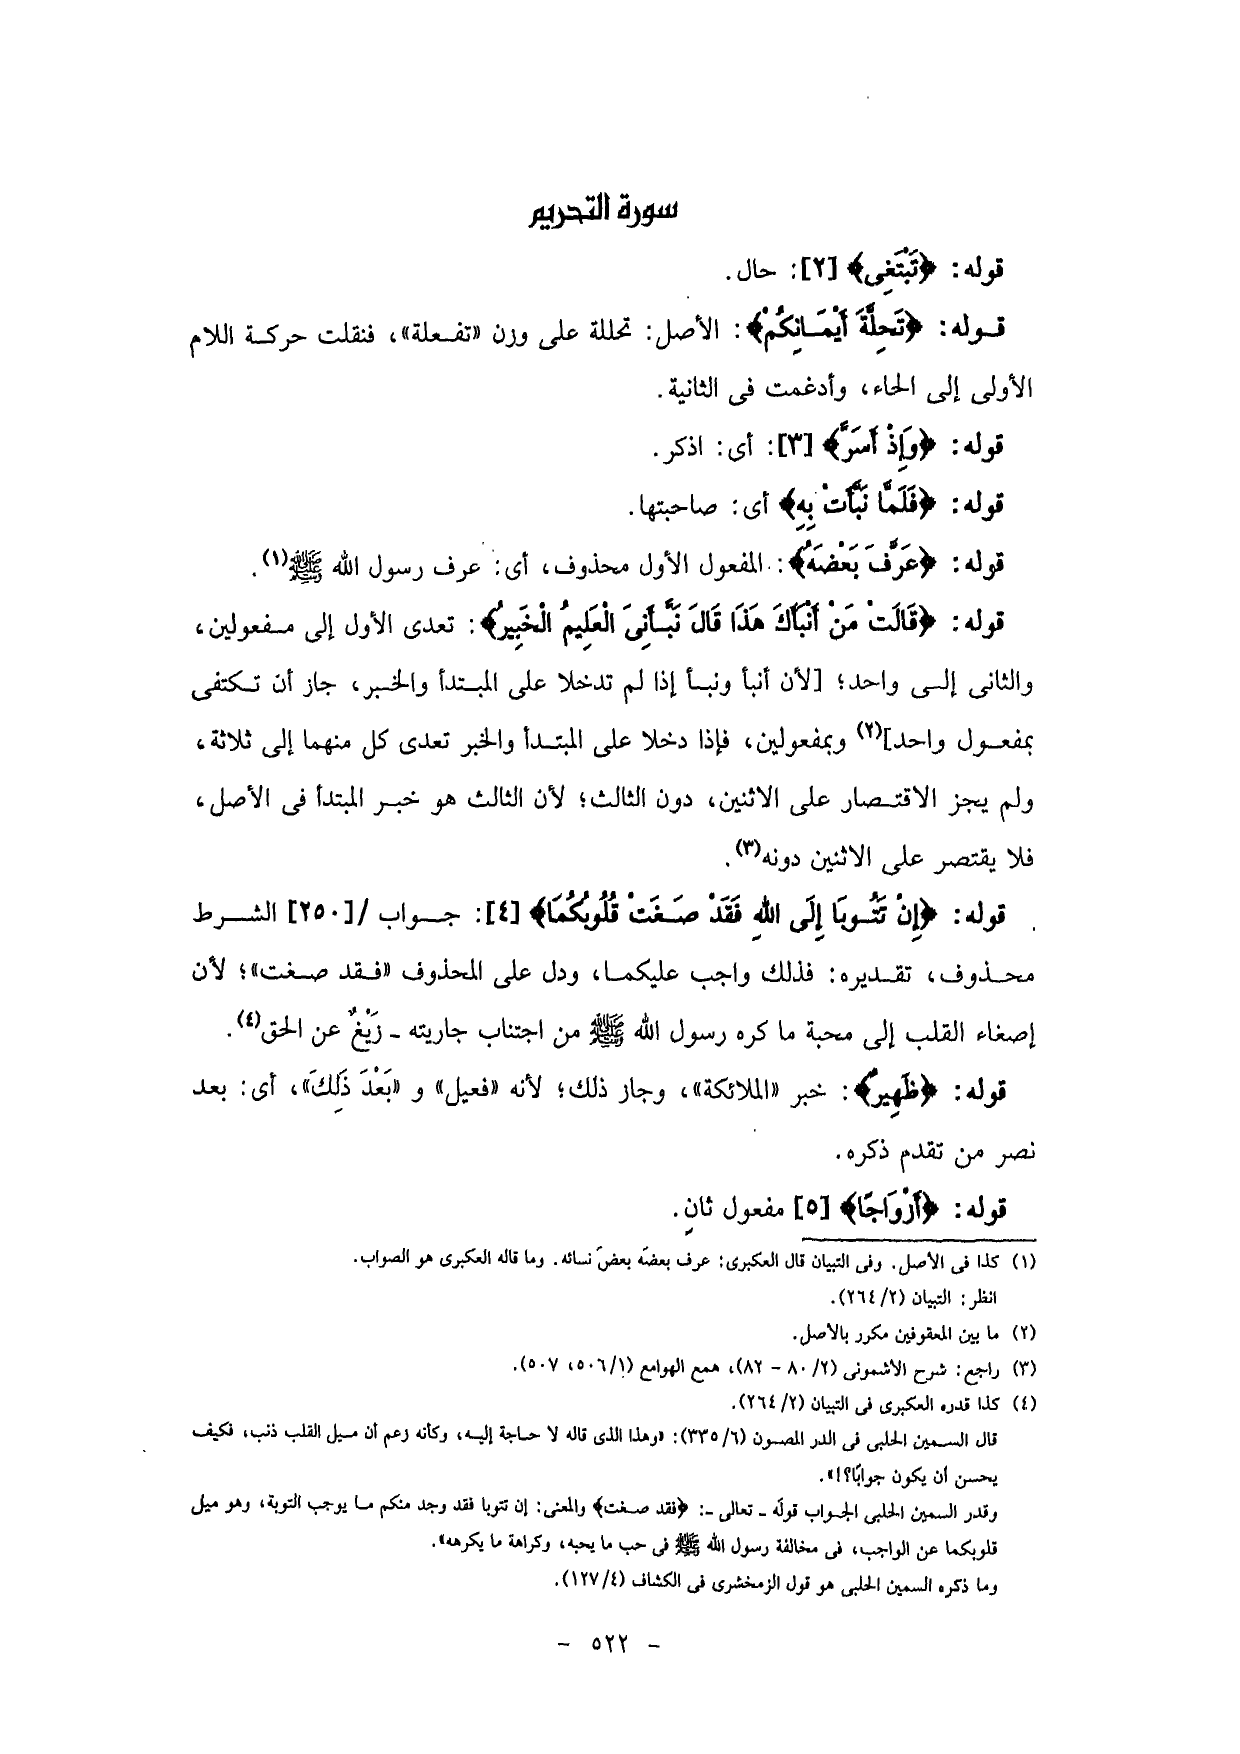 سورة التحريم
قوله: ﴿تَبْتَغِى﴾ [٢]: حال.
قوله: ﴿تَحِلَّةَ أَيْمَانِكُمْ﴾: الأصل: تحللة على وزن «تفعلة»، فنقلت حركة اللام
الأولى إلى الحاء، وأدغمت فى الثانية.
قوله: ﴿وَإِذْ أَسَرَّ﴾ [٣]: أى: اذكر.
قوله: ﴿فَلَمَّا نَبَّأَتْ بِهِ﴾ أى: صاحبتها.
قوله: ﴿عَرَّفَ بَعْضَهُ﴾: المفعول الأول محذوف، أى: عرف رسول الله ﷺ(١).
قوله: ﴿قَالَتْ مَنْ أَنْبَأَكَ هَذَا قَالَ نَبَّأَنِىَ الْعَلِيمُ الْخَبِيرُ﴾: تعدى الأول إلى مفعولين،
والثانى إلى واحد؛ [لأن أنبأ ونبأ إذا لم تدخلا على المبتدأ والخبر، جاز أن تكتفى
بمفعول واحد](٢) وبمفعولين، فإذا دخلا على المبتدأ والخبر تعدى كل منهما إلى ثلاثة،
ولم يجز الاقتصار على الاثنين، دون الثالث؛ لأن الثالث هو خبر المبتدأ فى الأصل،
فلا يقتصر على الاثنين دونه(٣).
قوله: ﴿إِنْ تَتُوبَا إِلَى اللهِ فَقَدْ صَغَتْ قُلُوبُكُمَا﴾ [٤]: جواب /[٢٥٠] الشرط
محذوف، تقديره: فذلك واجب عليكما، ودل على المحذوف «فقد صغت»؛ لأن
إصغاء القلب إلى محبة ما كره رسول الله ﷺ من اجتناب جاريته ـ زَيْغٌ عن الحق(٤).
قوله: ﴿ظَهِيرٌ﴾: خبر «الملائكة»، وجاز ذلك؛ لأنه «فعيل» و «بَعْدَ ذَلِكَ»، أى: بعد
نصر من تقدم ذكره.
قوله: ﴿أَزْوَاجًا﴾ [٥] مفعول ثانٍ.
(١) كذا فى الأصل. وفى التبيان قال العكبرى: عرف بعضَه بعضَ نسائه. وما قاله العكبرى هو الصواب.
انظر: التبيان (٢/ ٢٦٤).
(٢) ما بين المعقوفين مكرر بالأصل.
(٣) راجع: شرح الأشمونى (٢/ ٨٠ – ٨٢)، همع الهوامع (١/ ٥٠٦، ٥٠٧).
(٤) كذا قدره العكبرى فى التبيان (٢/ ٢٦٤).
قال السمين الحلبى فى الدر المصون (٦/ ٣٣٥): «وهذا الذى قاله لا حاجة إليه، وكأنه زعم أن ميل القلب ذنب، فكيف
يحسن أن يكون جوابًا؟!».
وقدر السمين الحلبى الجواب قوله ـ تعالى ـ: ﴿فقد صغت﴾ والمعنى: إن تتوبا فقد وجد منكم ما يوجب التوبة، وهو ميل
قلوبكما عن الواجب، فى مخالفة رسول الله ﷺ فى حب ما يحبه، وكراهة ما يكرهه».
وما ذكره السمين الحلبى هو قول الزمخشرى فى الكشاف (٤/ ١٢٧).
– ٥٢٢ –